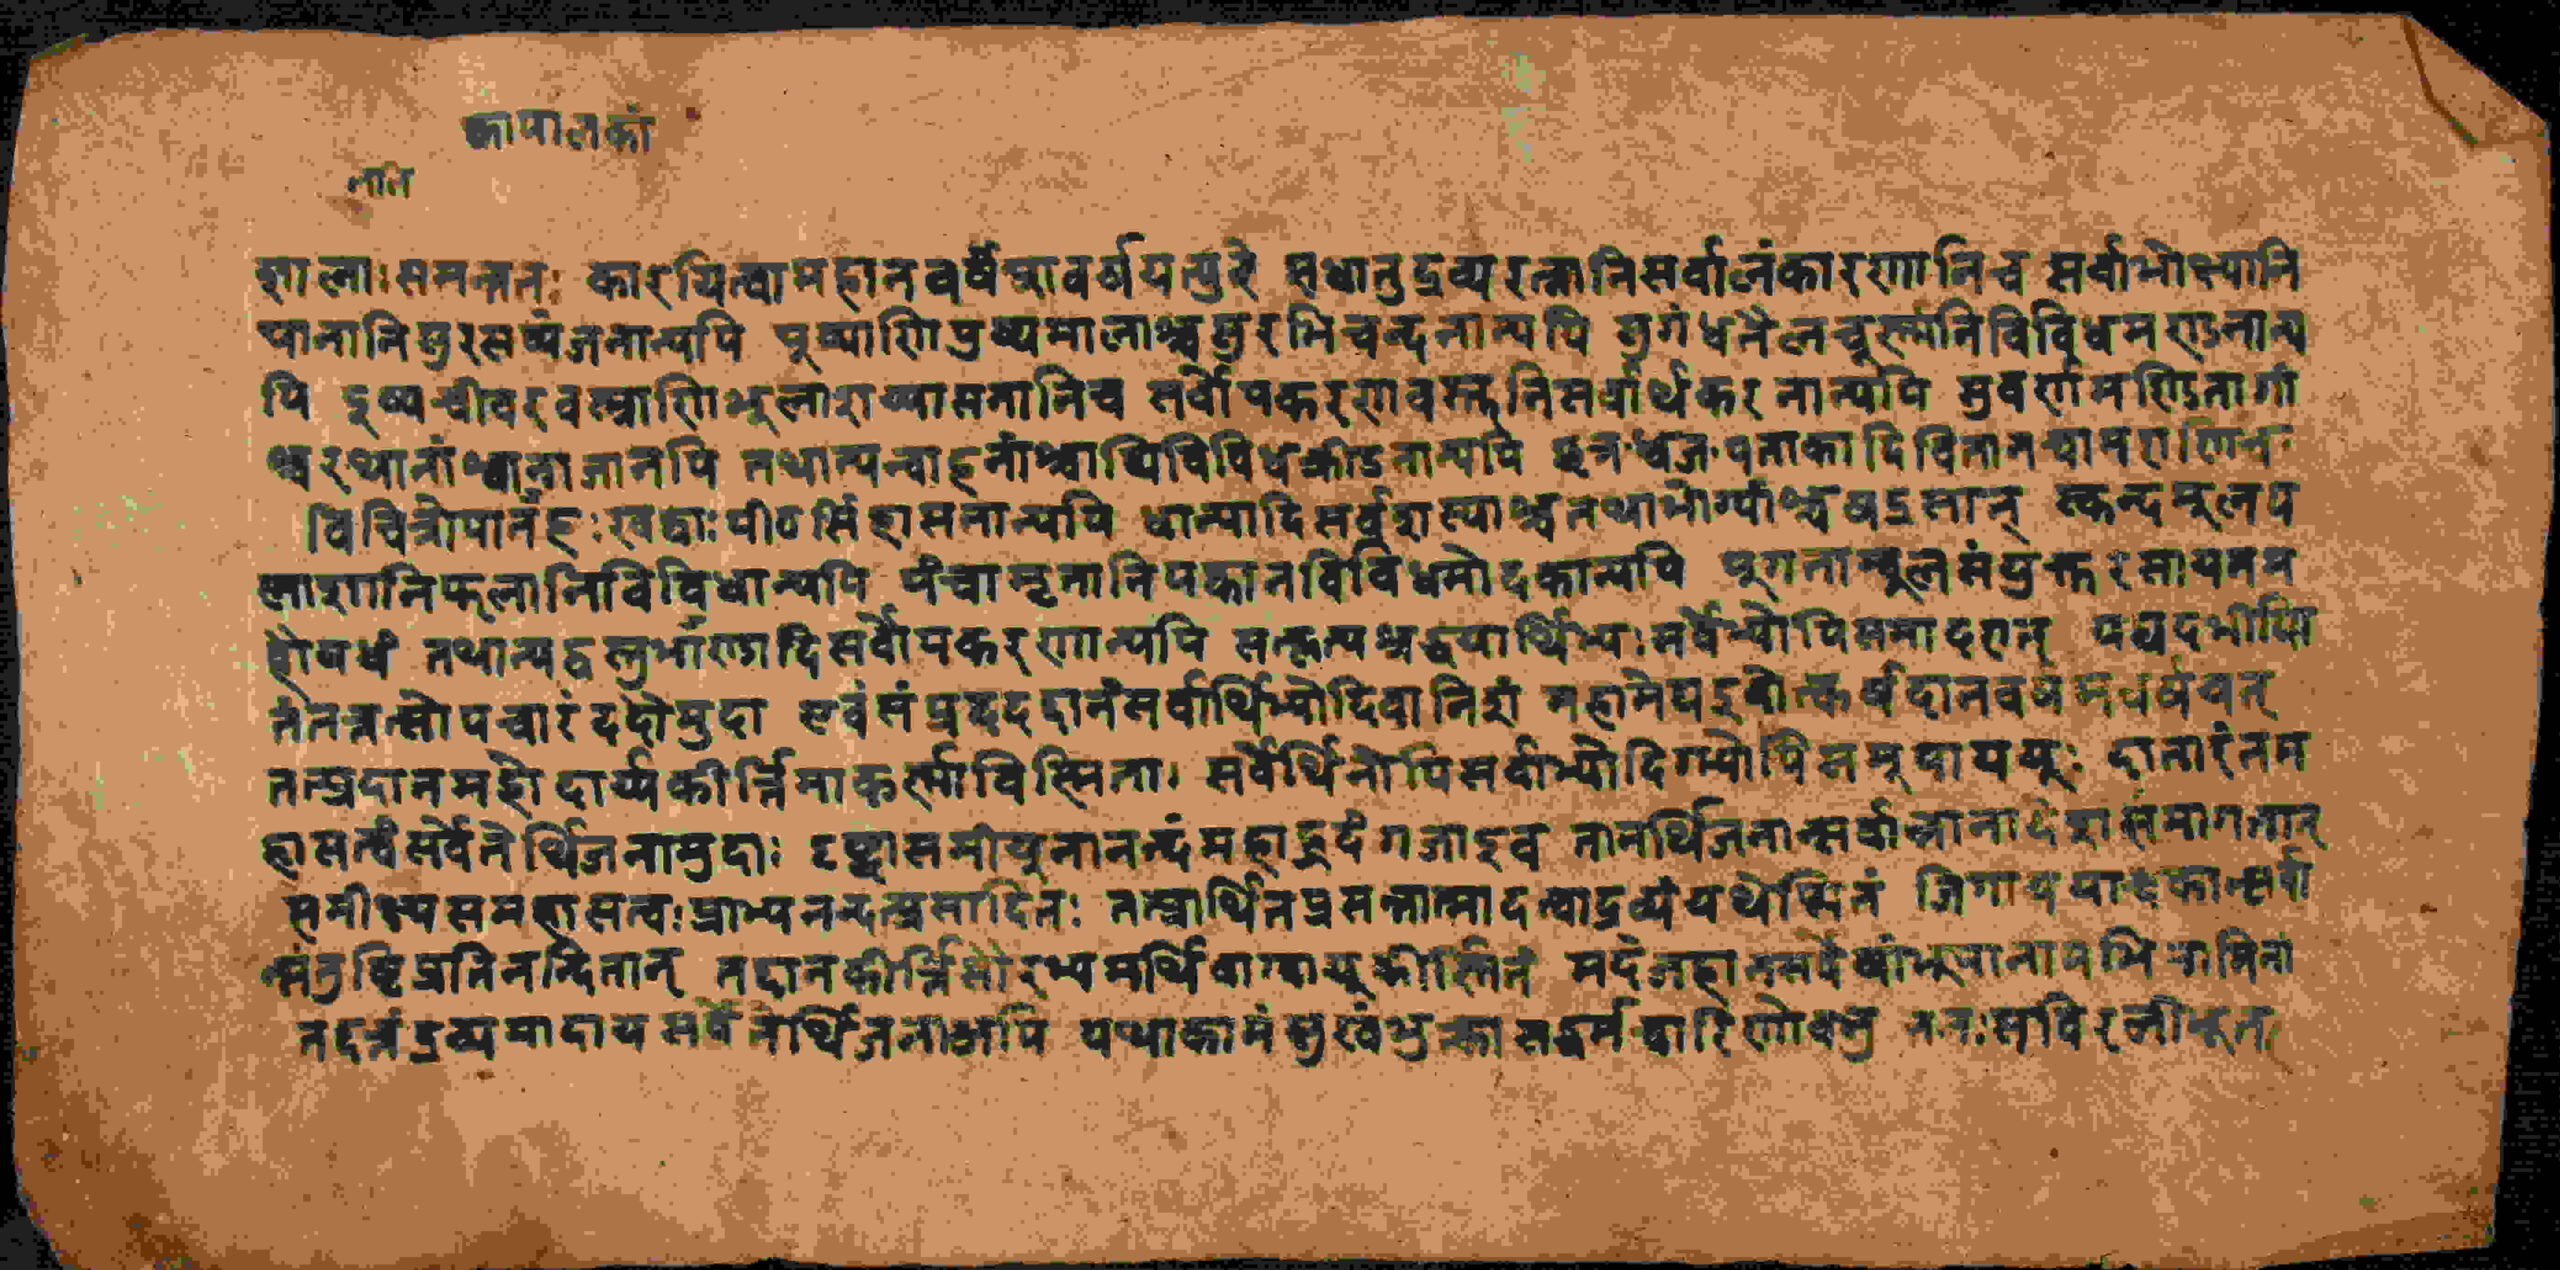 कापालकां
लाति
शालाः समन्ततः कारयित्वा महानवर्षेर्थावर्षयत्पुरे सधातुद्रव्यरत्नानि सर्वालंकारणानि च सर्वाभोक्ष्यानि
पानानि सुरसव्यंजनान्यपि पूष्पाणि पुष्पमालाश्च सुरभिचन्दनान्यपि सुगंधतैलचूर्त्मानि विविधमण्डनान्य
पि दूष्यचीवरवस्त्राणि भूलाशय्यासनानि च सर्वोपकरणवस्तूनि सर्वार्थकरनान्यपि सुवर्णमण्डितागां
श्वरथानांश्चा जानपि तथान्यन्वाहनांश्चापि विविधक्रीडनान्यपि छत्रध्वजपताकादि वितानचामराणि च
विचित्रोपानहः खट्वाः पीठसिंहासनान्यपि धान्यादि सर्वशस्याश्च तथाभोग्यांश्च षड्रसान् स्कन्दमूलप
लाशानि फलानि विविधान्यपि पंचामृतानि पक्वान विविधमोदकान्यपि पूगताम्बूलसंयुक्त रसायनम
होषधं तथान्यद्वस्तुभाण्डादि सर्वोपकरणान्यपि सत्कृत्य श्रद्धयार्थिभ्यः सर्वेभ्योपि समादरात् यद्यदभीप्सि
तं तत्रत्सोपचारं ददौ मुदा एवं संप्रददद्दानं सर्वार्थिभ्यो दिवानिशं महामेघ इवोत्कर्ष दानवर्षमवर्षयत्
तत्प्रदानमहोदार्य्यकीर्त्तिमाकर्त्स्य विस्मिताः सर्वेर्थिनोपि सर्वाभ्यो दिग्भ्योपि समूपाययूः दातारं तम
हासत्वं सर्वे तेर्थिजनामुदाः दृष्ट्वा समीयूतानन्दं महाह्रदं गजा इव तानर्थिजनान्सर्वान्नानादेशसमागतान्
समीक्ष्य स महासत्वः प्राभ्यनन्दत्प्रसादितः तत्प्रार्थितप्रसन्नात्मा दत्वा द्रव्यं यथेप्सितं जिगाय याचकान्सर्वा
संतुष्टिप्रतिनन्दितान् तद्दानकीर्त्तिसौरभ्यमर्थिवाग्वायूकीर्त्तितं मदं जहार सर्वेषां भूपानामभिमानिनां
तदन्नं द्रव्यमादाय सर्वे तेर्थिजना अपि यथाकामं सुखं भुक्त्वा सद्धर्मचारिणोवसु ततः सविरलीभूत